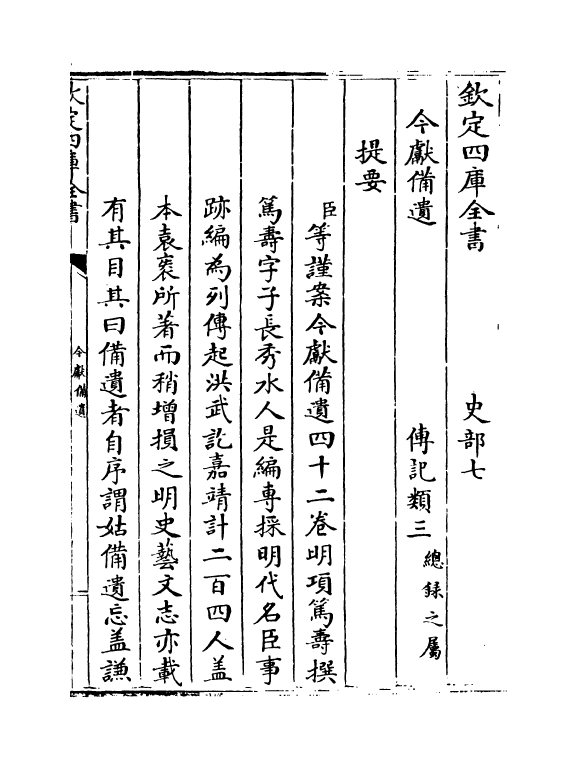 欽定四庫全書　　　史部七
今獻備遺　　　傳記類三總録之屬
提要
臣等謹案今獻備遺四十二卷明項篤壽撰
篤壽字子長秀水人是編專採明代名臣事
跡編為列傳起洪武訖嘉靖計二百四人盖
本袁袠所著而稍增損之明史藝文志亦載
有其目其曰備遺者自序謂姑備遺忘盖謙
欽定四庫全書
今獻備遺
一